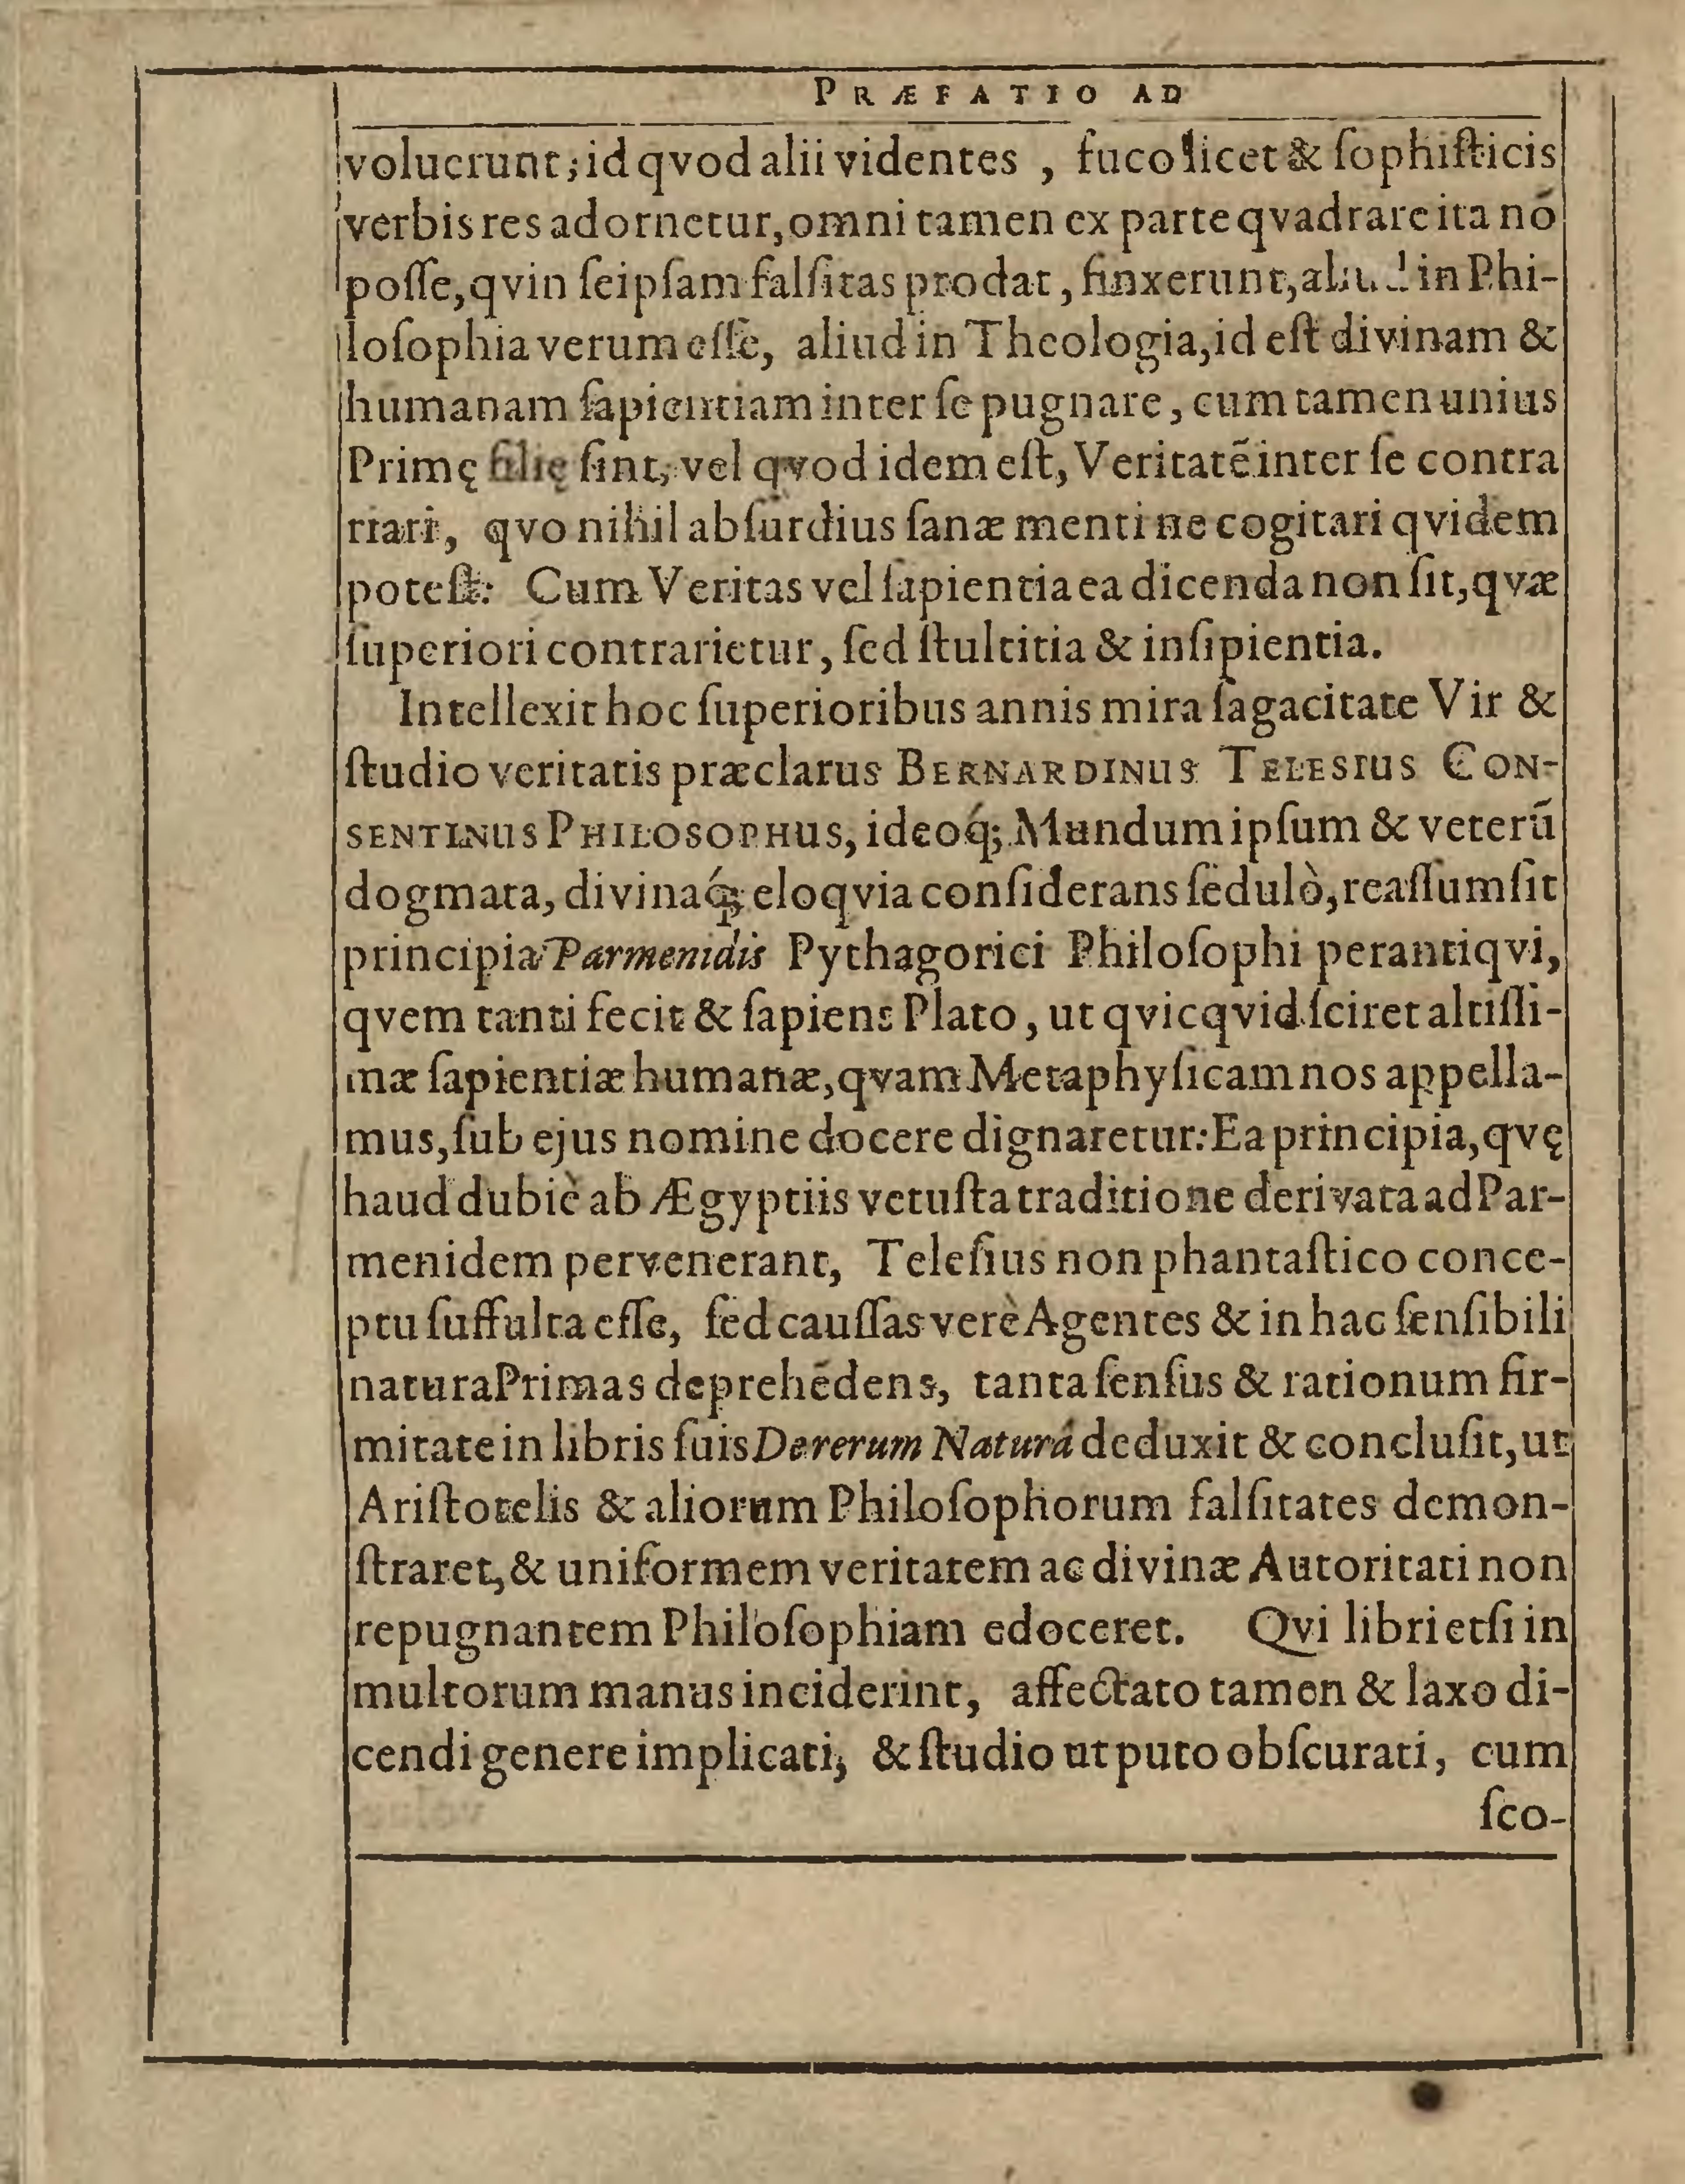 PRÆFATIO AD
voluerunt; id qvod alii videntes , fuco licet & ſophiſticis
verbis res adornetur, omni tamen ex parte qvadrare ita nõ
poſſe, qvin ſeipſam falſitas prodat , finxerunt, aliud in Phi-
loſophia verum eſſe, aliud in Theologia, id eſt divinam &
humanam ſapientiam inter ſe pugnare , cum tamen unius
Primę filię ſint, vel qvod idem eſt, Veritatẽ inter ſe contra
riari, qvo nihil abſurdius ſanæ menti ne cogitari qvidem
poteſt: Cum Veritas vel ſapientia ea dicenda non ſit, qvæ
ſuperiori contrarietur , ſed ſtultitia & inſipientia.
Intellexit hoc ſuperioribus annis mira ſagacitate Vir &
ſtudio veritatis præclarus BERNARDINUS TELESIUS CON-
SENTINUS PHILOSOPHUS, ideoq́; Mundum ipſum & veterũ
dogmata, divinaq́; eloqvia conſiderans ſedulò, reaſſumſit
principia Parmenidis Pythagorici Philoſophi perantiqvi,
qvem tanti fecit & ſapiens Plato , ut qvicqvid ſciret altiſſi-
mæ ſapientiæ humanæ, qvam Metaphyſicam nos appella-
mus, ſub ejus nomine docere dignaretur: Ea principia, qvę
haud dubiè ab Ægyptiis vetuſta traditione derivata ad Par-
menidem pervenerant, Teleſius non phantaſtico conce-
ptu ſuffulta eſſe, ſed cauſſas verè Agentes & in hac ſenſibili
natura Primas deprehẽdens, tanta ſenſus & rationum fir-
mitate in libris ſuis De rerum Naturâ deduxit & concluſit, ut
Ariſtotelis & aliorum Philoſophorum falſitates demon-
ſtraret, & uniformem veritatem ac divinæ Autoritati non
repugnantem Philoſophiam edoceret. Qvi libri etſi in
multorum manus inciderint, affectato tamen & laxo di-
cendi genere implicati, & ſtudio ut puto obſcurati , cum
ſco-